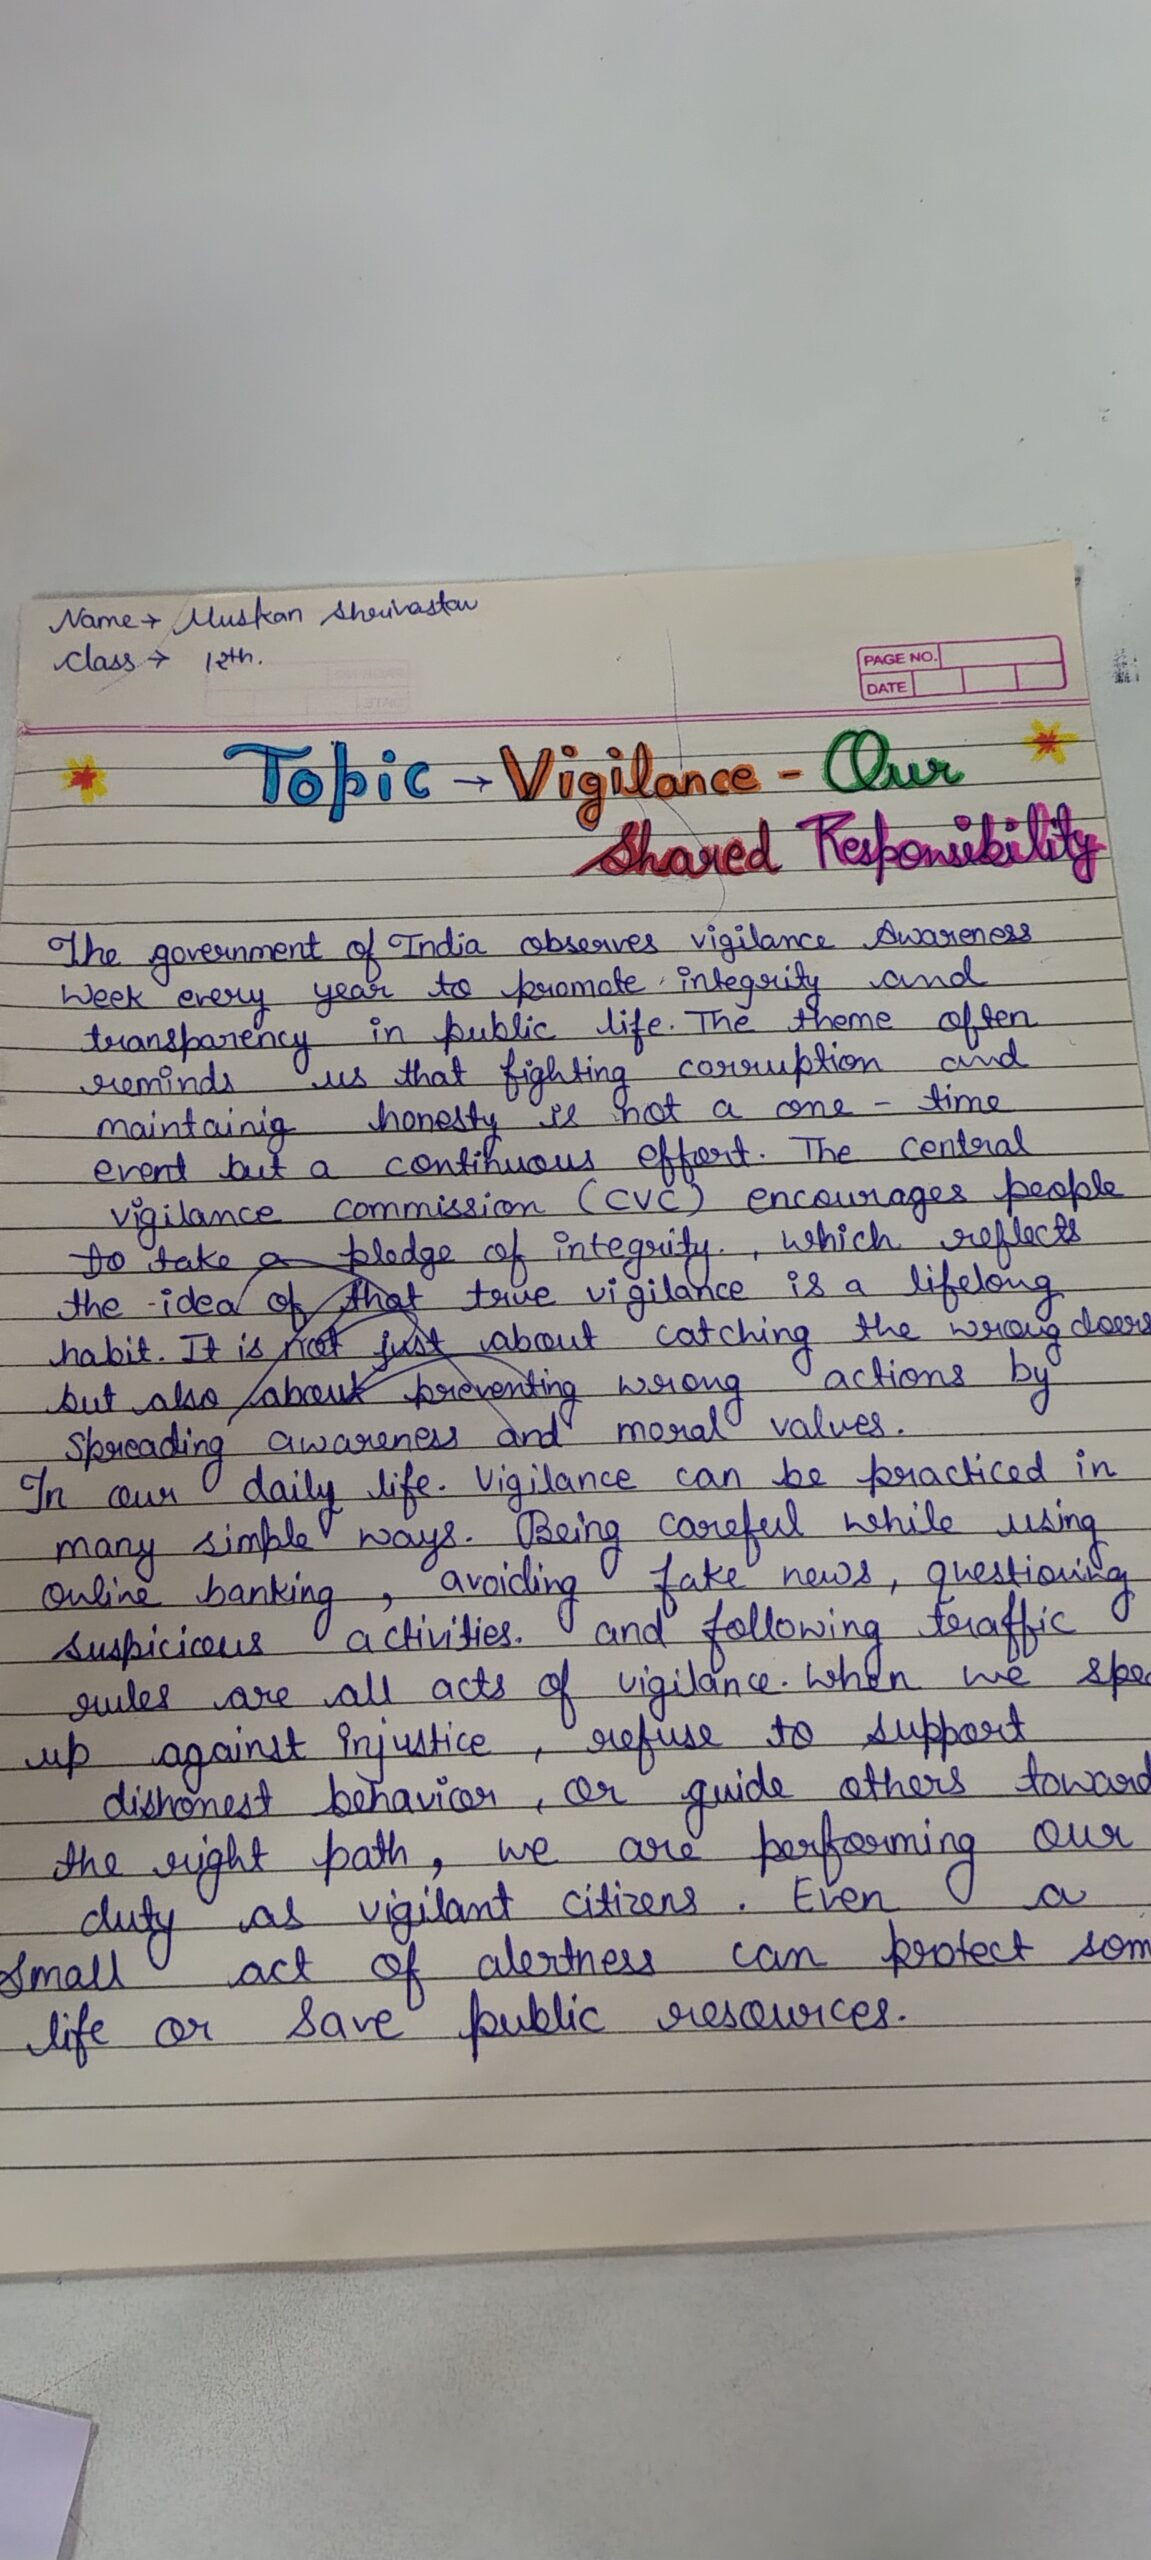 Name → Muskan Shrivastav
Class → 12th.
PAGE NO.
DATE
Topic → Vigilance - Our
Shared Responsibility
The government of India observes vigilance Awareness
Week every year to promote integrity and
transparency in public life. The theme often
reminds us that fighting corruption and
maintainig honesty is not a one - time
event but a continuous effort. The central
vigilance commission (CVC) encourages people
to take a pledge of integrity., which reflects
the idea of that true vigilance is a lifelong
habit. It is not just about catching the wrong doers
but also about preventing wrong actions by
Spreading awareness and moral values.
In our daily life. Vigilance can be practiced in
many simple ways. Being careful while using
online banking, avoiding fake news, questioning
suspicious activities. and following traffic
rules are all acts of vigilance. When we
up against injustice, refuse to support
dishonest behavior, or guide others toward
the right path, we are performing our
duty as vigilant citizens. Even a
Small act of alertness can protect som
life or save public resources.